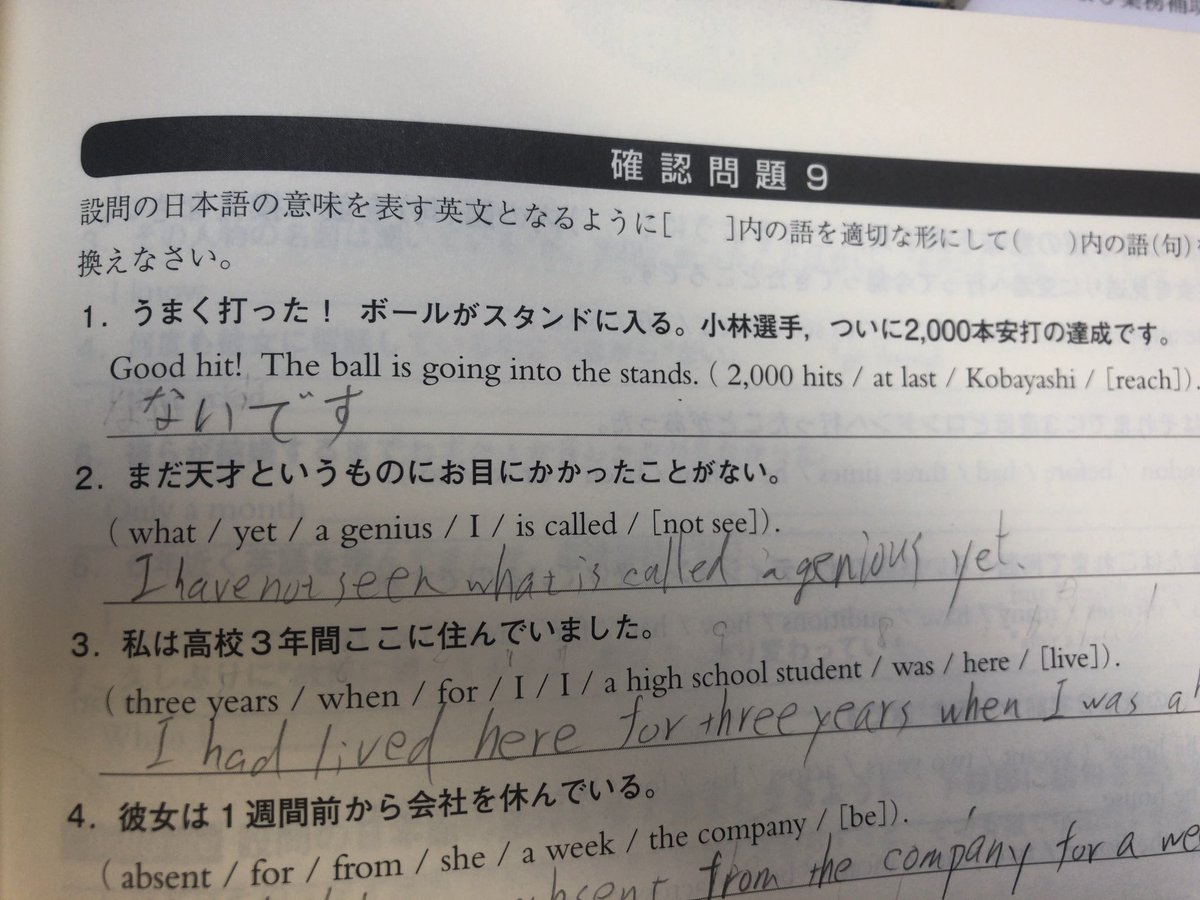 業務補助
確認問題9
設問の日本語の意味を表す英文となるように[　　]内の語を適切な形にして(　　)内の語(句)
換えなさい。
1. うまく打った！ ボールがスタンドに入る。小林選手，ついに2,000本安打の達成です。
Good hit! The ball is going into the stands. ( 2,000 hits / at last / Kobayashi / [reach]).
ないです
2. まだ天才というものにお目にかかったことがない。
( what / yet / a genius / I / is called / [not see]).
I have not seen what is called a genious yet.
3. 私は高校3年間ここに住んでいました。
( three years / when / for / I / I / a high school student / was / here / [live]).
I had lived here for three years when I was a h
4. 彼女は1週間前から会社を休んでいる。
( absent / for / from / she / a week / the company / [be]).
from the company for a we